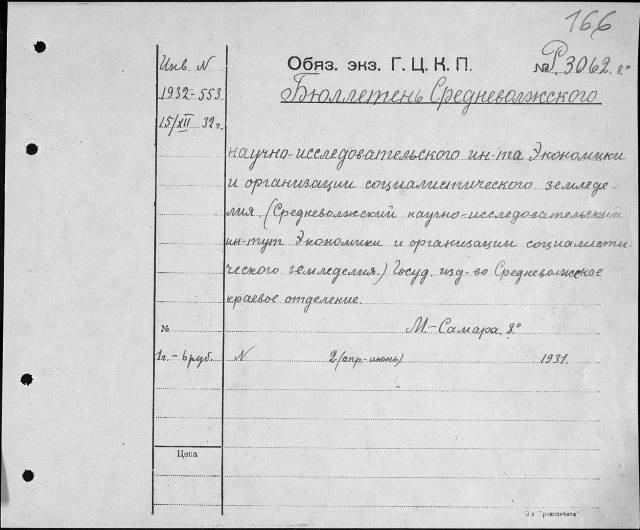 166
Инв. N
Обяз. экз. Г. Ц. К. П.
№ Р.3062. 8.°
1932-553
Бюллетень Средневолжского
15/XII 32 г.
научно-исследовательского ин-та Экономики
и организации социалистического земледе-
лия. (Средневолжский научно-исследовательский
ин-тут Экономики и организации социалисти-
ческого земледелия.) Госуд. изд-во Средневолжское
краевое отделение.
№
М.-Самара. 8.°
1 г. - 6 руб.
N
2 (апр.-июнь)
1931.
Цена